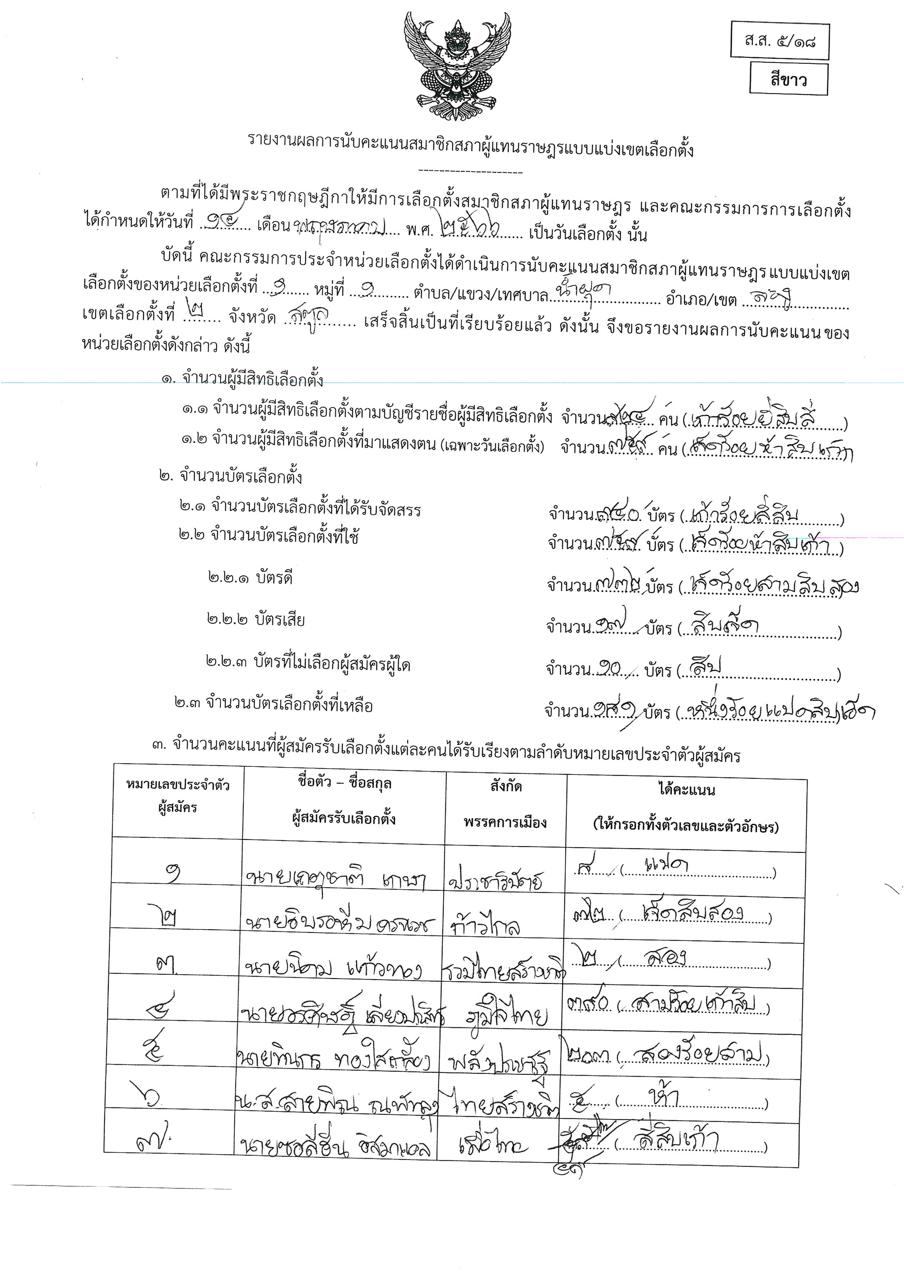 ส.ส. ๕/๑๘
สีขาว
รายงานผลการนับคะแนนสมาชิกสภาผู้แทนราษฎรแบบแบ่งเขตเลือกตั้ง
--------------------
ตามที่ได้มีพระราชกฤษฎีกาให้มีการเลือกตั้งสมาชิกสภาผู้แทนราษฎร และคณะกรรมการการเลือกตั้ง
ได้กำหนดให้วันที่ ๑๔ เดือน พฤษภาคม พ.ศ. ๒๕๖๖ เป็นวันเลือกตั้ง นั้น
บัดนี้ คณะกรรมการประจำหน่วยเลือกตั้งได้ดำเนินการนับคะแนนสมาชิกสภาผู้แทนราษฎรแบบแบ่งเขต
เลือกตั้งของหน่วยเลือกตั้งที่ ๑ หมู่ที่ ๑ ตำบล/แขวง/เทศบาล น้ำผุด อำเภอ/เขต ละงู
เขตเลือกตั้งที่ ๒ จังหวัด สตูล เสร็จสิ้นเป็นที่เรียบร้อยแล้ว ดังนั้น จึงขอรายงานผลการนับคะแนนของ
หน่วยเลือกตั้งดังกล่าว ดังนี้
๑. จำนวนผู้มีสิทธิเลือกตั้ง
๑.๑ จำนวนผู้มีสิทธิเลือกตั้งตามบัญชีรายชื่อผู้มีสิทธิเลือกตั้ง จำนวน ๙๒๔ คน (เก้าร้อยยี่สิบสี่)
๑.๒ จำนวนผู้มีสิทธิเลือกตั้งที่มาแสดงตน (เฉพาะวันเลือกตั้ง) จำนวน ๗๕๙ คน (เจ็ดร้อยห้าสิบเก้า)
๒. จำนวนบัตรเลือกตั้ง
๒.๑ จำนวนบัตรเลือกตั้งที่ได้รับจัดสรร จำนวน ๙๔๐ บัตร (เก้าร้อยสี่สิบ)
๒.๒ จำนวนบัตรเลือกตั้งที่ใช้ จำนวน ๗๕๙ บัตร (เจ็ดร้อยห้าสิบเก้า)
๒.๒.๑ บัตรดี จำนวน ๗๓๒ บัตร (เจ็ดร้อยสามสิบสอง
๒.๒.๒ บัตรเสีย จำนวน ๑๗ บัตร (สิบเจ็ด)
๒.๒.๓ บัตรที่ไม่เลือกผู้สมัครผู้ใด จำนวน ๑๐ บัตร (สิบ)
๒.๓ จำนวนบัตรเลือกตั้งที่เหลือ จำนวน ๑๘๑ บัตร (หนึ่งร้อยแปดสิบเอ็ด
๓. จำนวนคะแนนที่ผู้สมัครรับเลือกตั้งแต่ละคนได้รับเรียงตามลำดับหมายเลขประจำตัวผู้สมัคร
หมายเลขประจำตัวผู้สมัคร ชื่อตัว – ชื่อสกุล ผู้สมัครรับเลือกตั้ง สังกัด พรรคการเมือง ได้คะแนน (ให้กรอกทั้งตัวเลขและตัวอักษร)
๑ นาย ประชาธิปัตย์ ๘ (แปด)
๒ นายอิบรอหีม ก้าวไกล ๗๒ (เจ็ดสิบสอง)
๓ นายนิคม แก้วทอง รวมไทยสร้างชาติ ๒ (สอง)
๔ นายวรศิษฎ์ เลียงประสิทธิ์ ภูมิใจไทย ๓๙๐ (สามร้อยเก้าสิบ)
๕ นายทินกร ทองใสเกลี้ยง พลังประชารัฐ ๒๐๓ (สองร้อยสาม)
๖ น.ส.สายพิณ ณ พัทลุง ไทยสร้างชาติ ๕ (ห้า)
๗ นายซอลีฮีน อิสมาแอล เพื่อไทย (สี่สิบเก้า)
๔๙